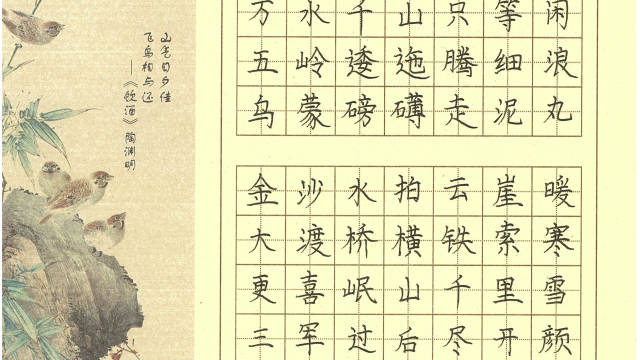 山气日夕佳
飞鸟相与还
——《饮酒》陶渊明
万水千山只等闲
五岭逶迤腾细浪
乌蒙磅礴走泥丸
金沙水拍云崖暖
大渡桥横铁索寒
更喜岷山千里雪
三军过后尽开颜